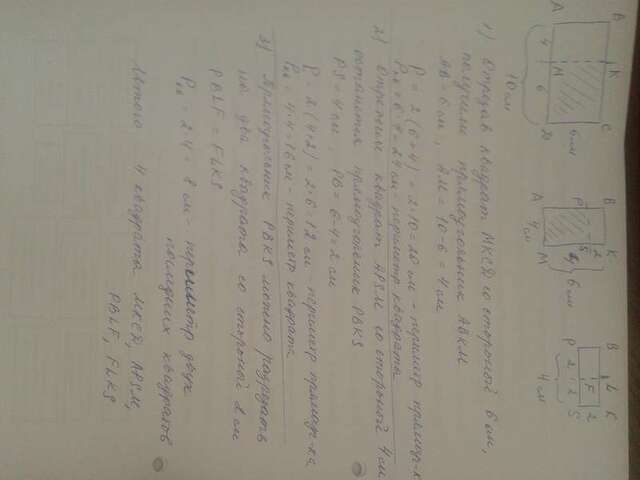 A B
4
M K
6
Д C
10 см
6 см
B K
P S 2
A M
4 см
6 см
B L K
P 2 F 2 S 2
4 см
1) Отрезав квадрат МКСД со стороной 6 см,
получили прямоугольник АВКМ
АВ = 6 см, АМ = 10-6 = 4 см
P = 2(6+4) = 2·10 = 20 см - периметр прямоуг-ка
Pкв = 6·4 = 24 см - периметр квадрата
2) Отрежем квадрат APSM со стороной 4 см
останется прямоугольник PBKS
PS = 4 см, PB = 6-4 = 2 см
P = 2(4+2) = 2·6 = 12 см - периметр прямоуг-ка
Pкв = 4·4 = 16 см - периметр квадрата
3) Прямоугольник PBKS можно разрезать
на два квадрата со стороной 2 см
PBLF = FLKS
Pкв = 2·4 = 8 см - периметр двух
последних квадратов
Итого 4 квадрата МКСД, APSM,
PBLF, FLKS